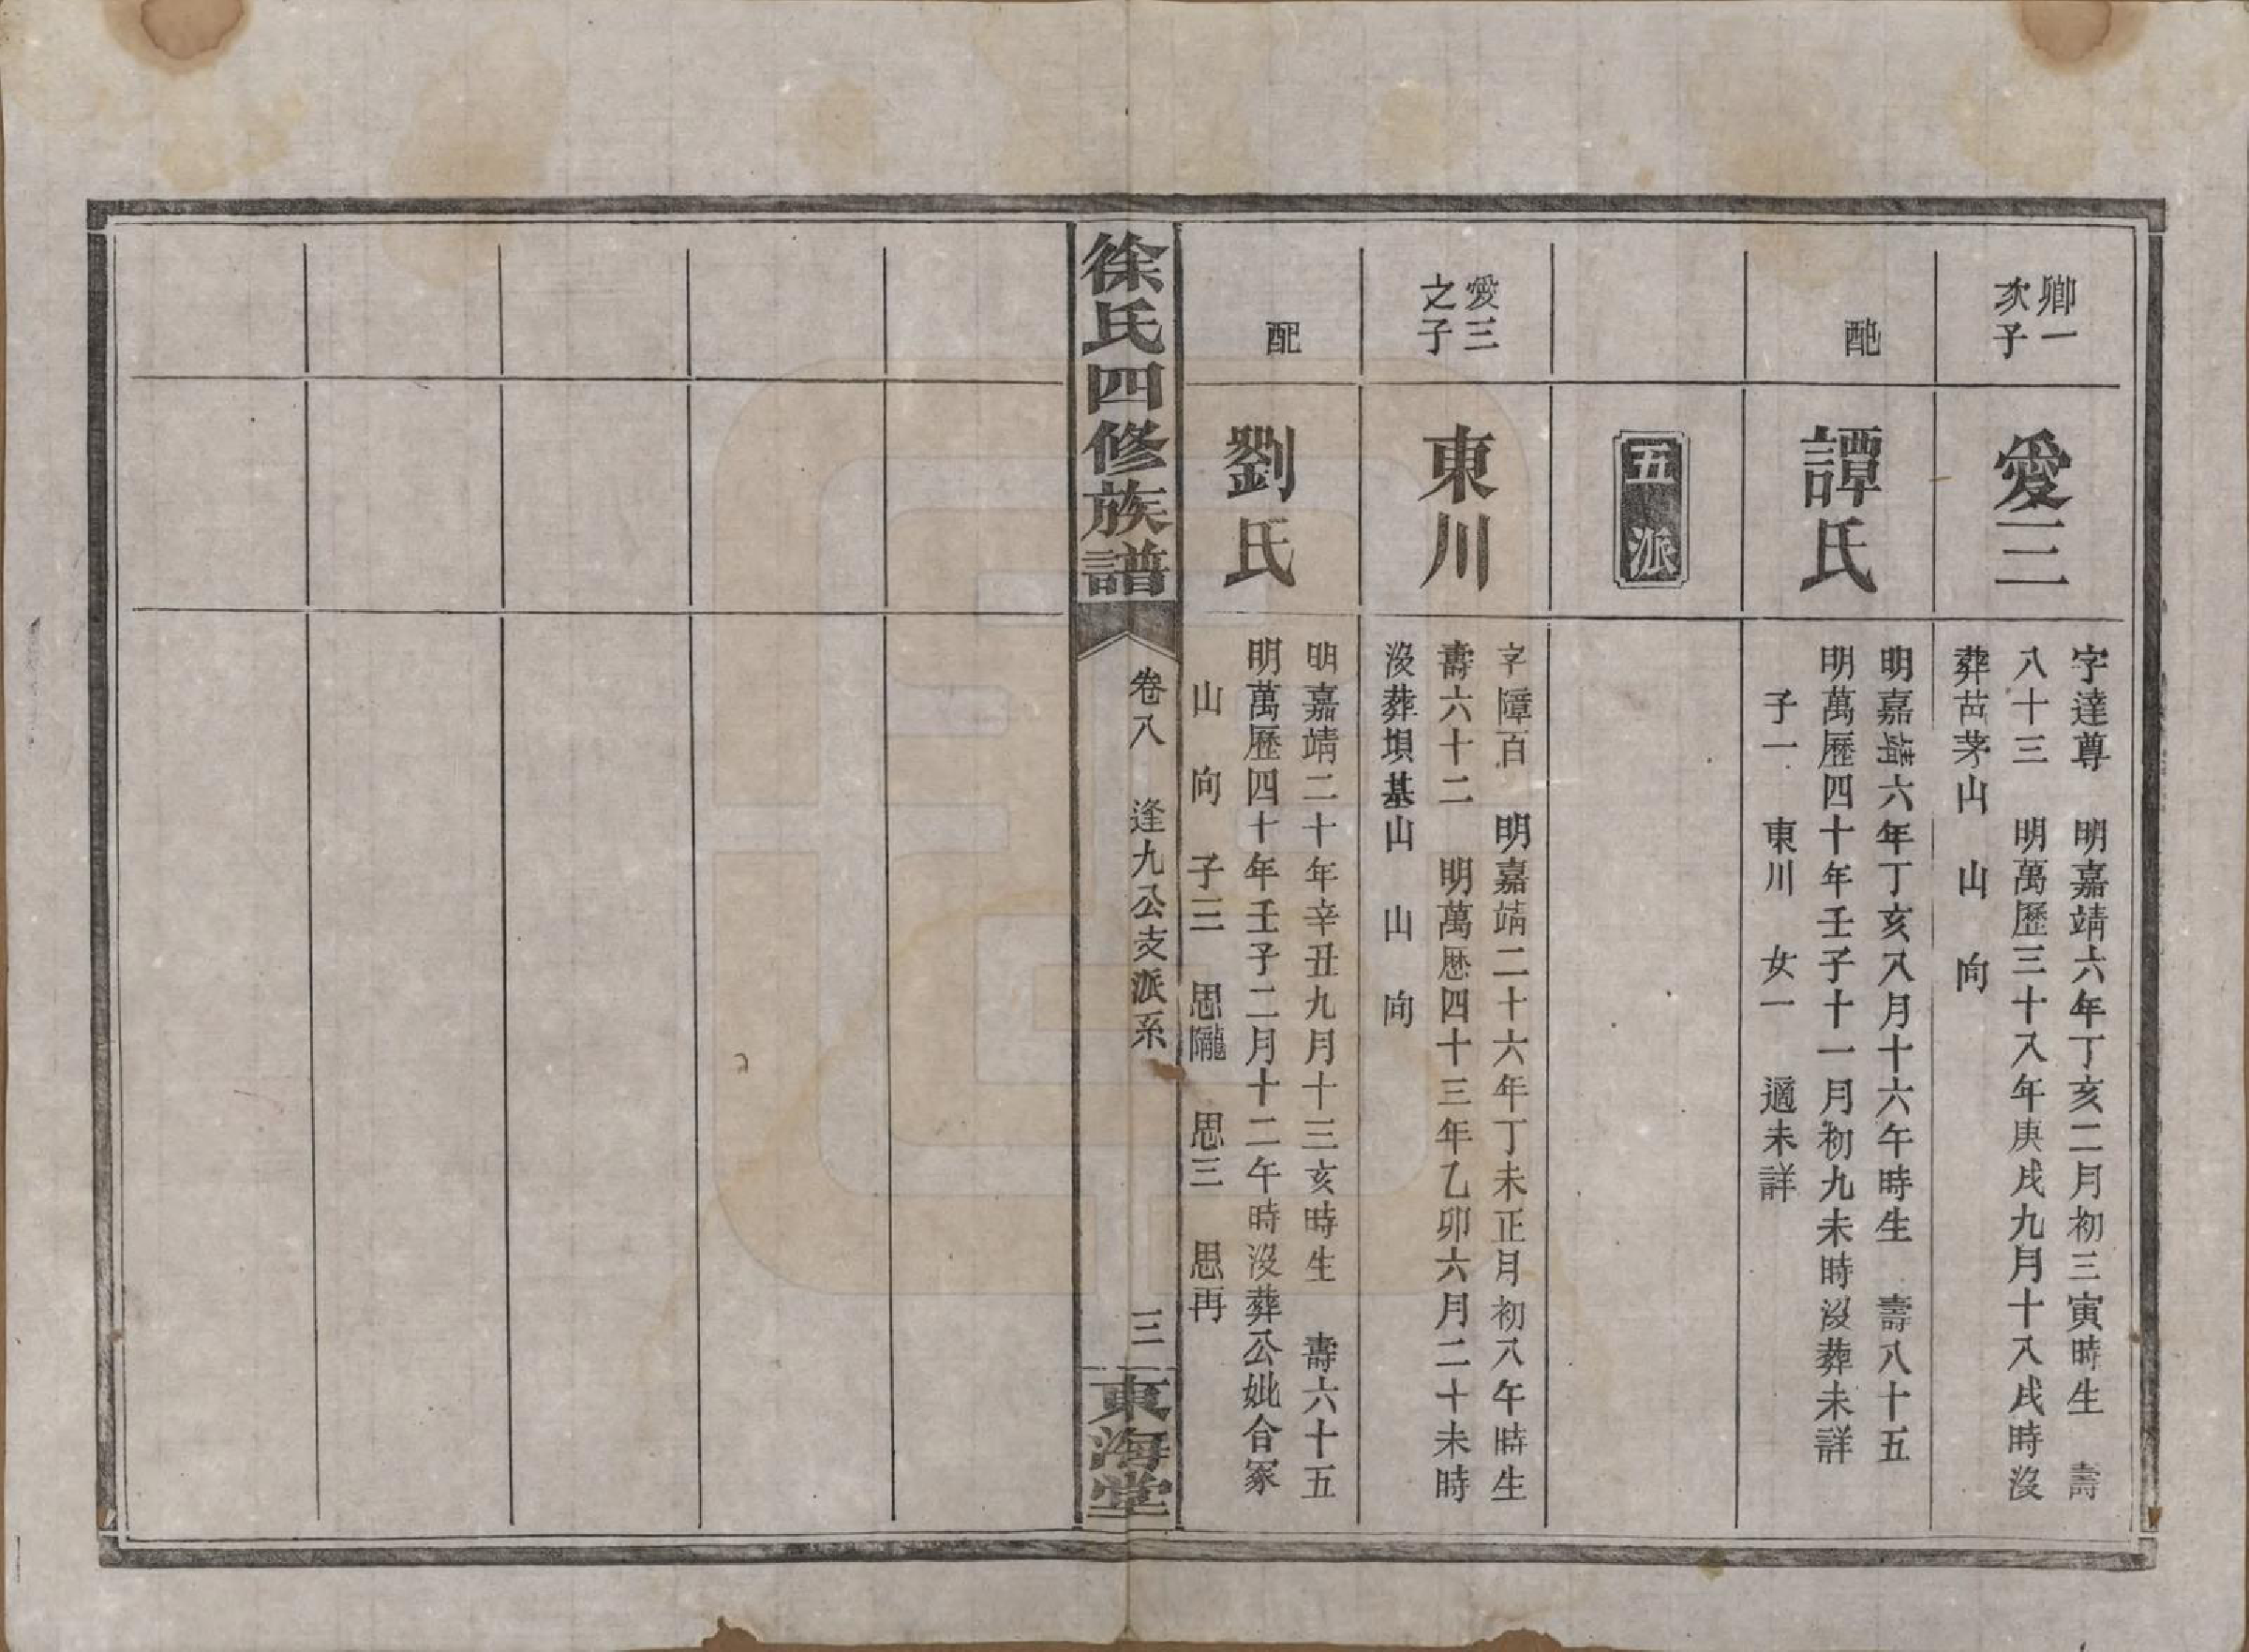 卿一
次子
愛三
字達尊　明嘉靖六年丁亥二月初三寅時生　壽
八十三　明萬歷三十八年庚戌九月十八戌時沒
葬苗茅山　山　向
配
譚氏
明嘉靖六年丁亥八月十六午時生　壽八十五
明萬歷四十年壬子十一月初九未時沒葬未詳
子一　東川　女一　適未詳
五派
愛三
之子
東川
字障百　明嘉靖二十六年丁未正月初八午時生
壽六十二　明萬歷四十三年乙卯六月二十未時
沒葬垻基山　山　向
配
劉氏
明嘉靖二十年辛丑九月十三亥時生　壽六十五
明萬歷四十年壬子二月十二午時沒葬公妣合冢
山　向　子三　思隴　思三　思再
徐氏四修族譜
卷八　逢九公支派系
三
東海堂